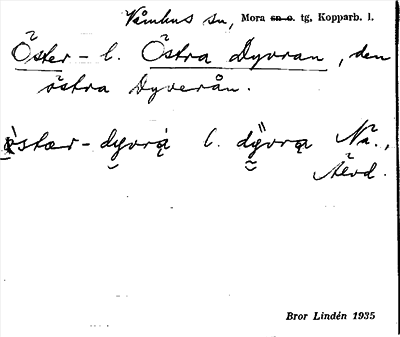 Våmhus sn, Mora sn o. tg, Kopparb. l.
Öster- l. Östra Dyvran, den
östra Dyverån.
östær- dyvrą l. dÿvrą Nä.,
Älvd.
Bror Lindén 1935